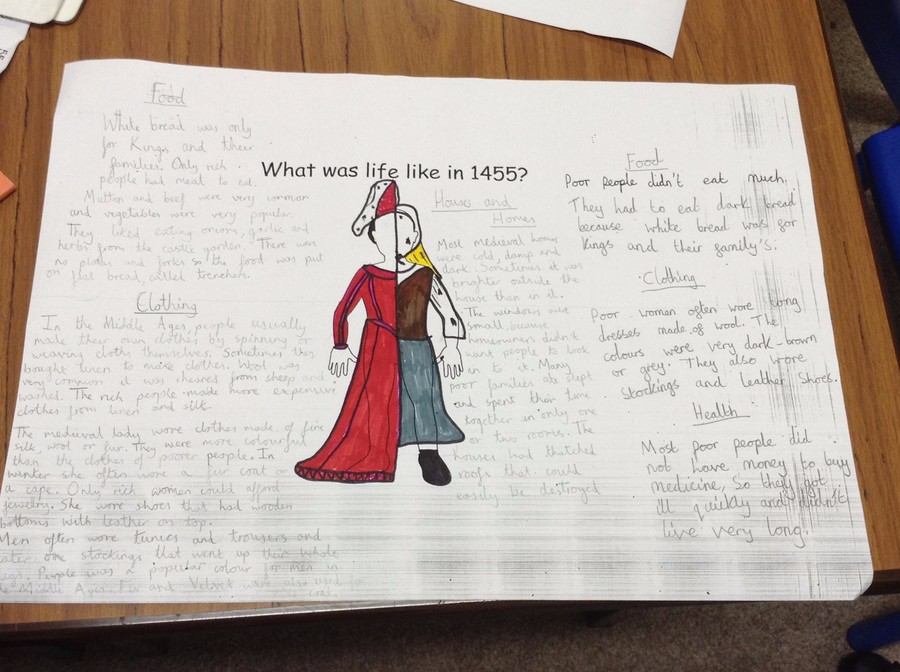 What was life like in 1455?
Food
White bread was only
for Kings and their
families. Only rich
people had meat to eat.
Mutton and beef were very common
and vegetables were very popular.
They liked eating onions, garlic and
herbs from the castle garden. There were
no plates and forks so the food was put
on flat bread, called trenchers.
Clothing
In the Middle Ages, people usually
made their own clothes by spinning or
weaving cloths themselves. Sometimes they
bought linen to make clothes. Wool was
very common it was sheared from sheep and
washed. The rich people made more expensive
clothes from linen and silk.
The medieval lady wore clothes made of fine
silk, wool or fur. They were more colourful
than the clothes of poorer people. In
winter she often wore a fur coat or
a cape. Only rich women could afford
jewelry. She wore shoes that had wooden
bottoms with leather on top.
Men often wore tunics and trousers and
stockings that went up their whole
legs. was a popular colour for men in
the Middle Ages. Fur and Velvet were also used for
Houses and
Homes
Most medieval homes
were cold, damp and
dark. Sometimes it was
brighter outside the
house than in it.
The windows were
small, because
homeowners didn't
want people to look
in to it. Many
poor families ate slept
and spent their time
together in only one
or two rooms. The
houses had thatched
roofs that could
easily be destroyed
Food
Poor people didn't eat much.
They had to eat dark bread
because white bread was for
Kings and their family's.
Clothing
Poor women often wore long
dresses made of wool. The
colours were very dark-brown
or grey. They also wore
stockings and leather shoes.
Health
Most poor people did
not have money to buy
medicine, So they got
ill quickly and didn't
live very long.